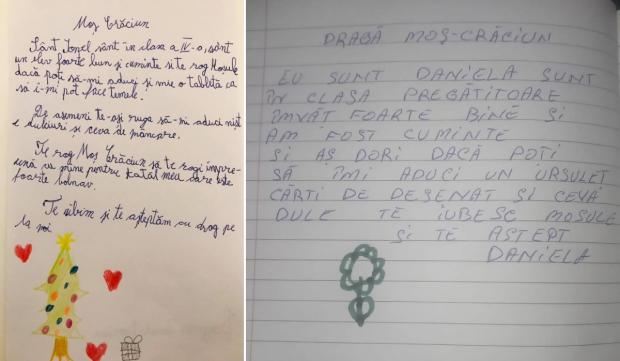 Moș Crăciun
Sânt Ionel sânt în clasa a IV-a, sânt
un elev foarte bun și cuminte și te rog Moșule
dacă poți să-mi aduci și mie o tabletă ca
să-mi pot face temele.
De asemeni te-aș ruga să-mi aduci nișt
e dulciuri și ceva de mâncare.
Te rog Moș Crăciun să te rogi împre-
ună cu mine pentru tatăl meu care este
foarte bolnav.
Te iubim și te așteptăm cu drag pe
la noi
DRAGĂ MOȘ-CRĂCIUN
EU SUNT DANIELA SUNT
ÎN CLASA PREGĂTITOARE
ÎMVĂT FOARTE BINE ȘI
AM FOST CUMINTE
ȘI AȘ DORI DACĂ POȚI
SĂ ÎMI ADUCI UN URSULEȚ
CĂRȚI DE DESENAT ȘI CEVA
DULE TE IUBESC MOȘULE
ȘI TE AȘTEPT
DANIELA